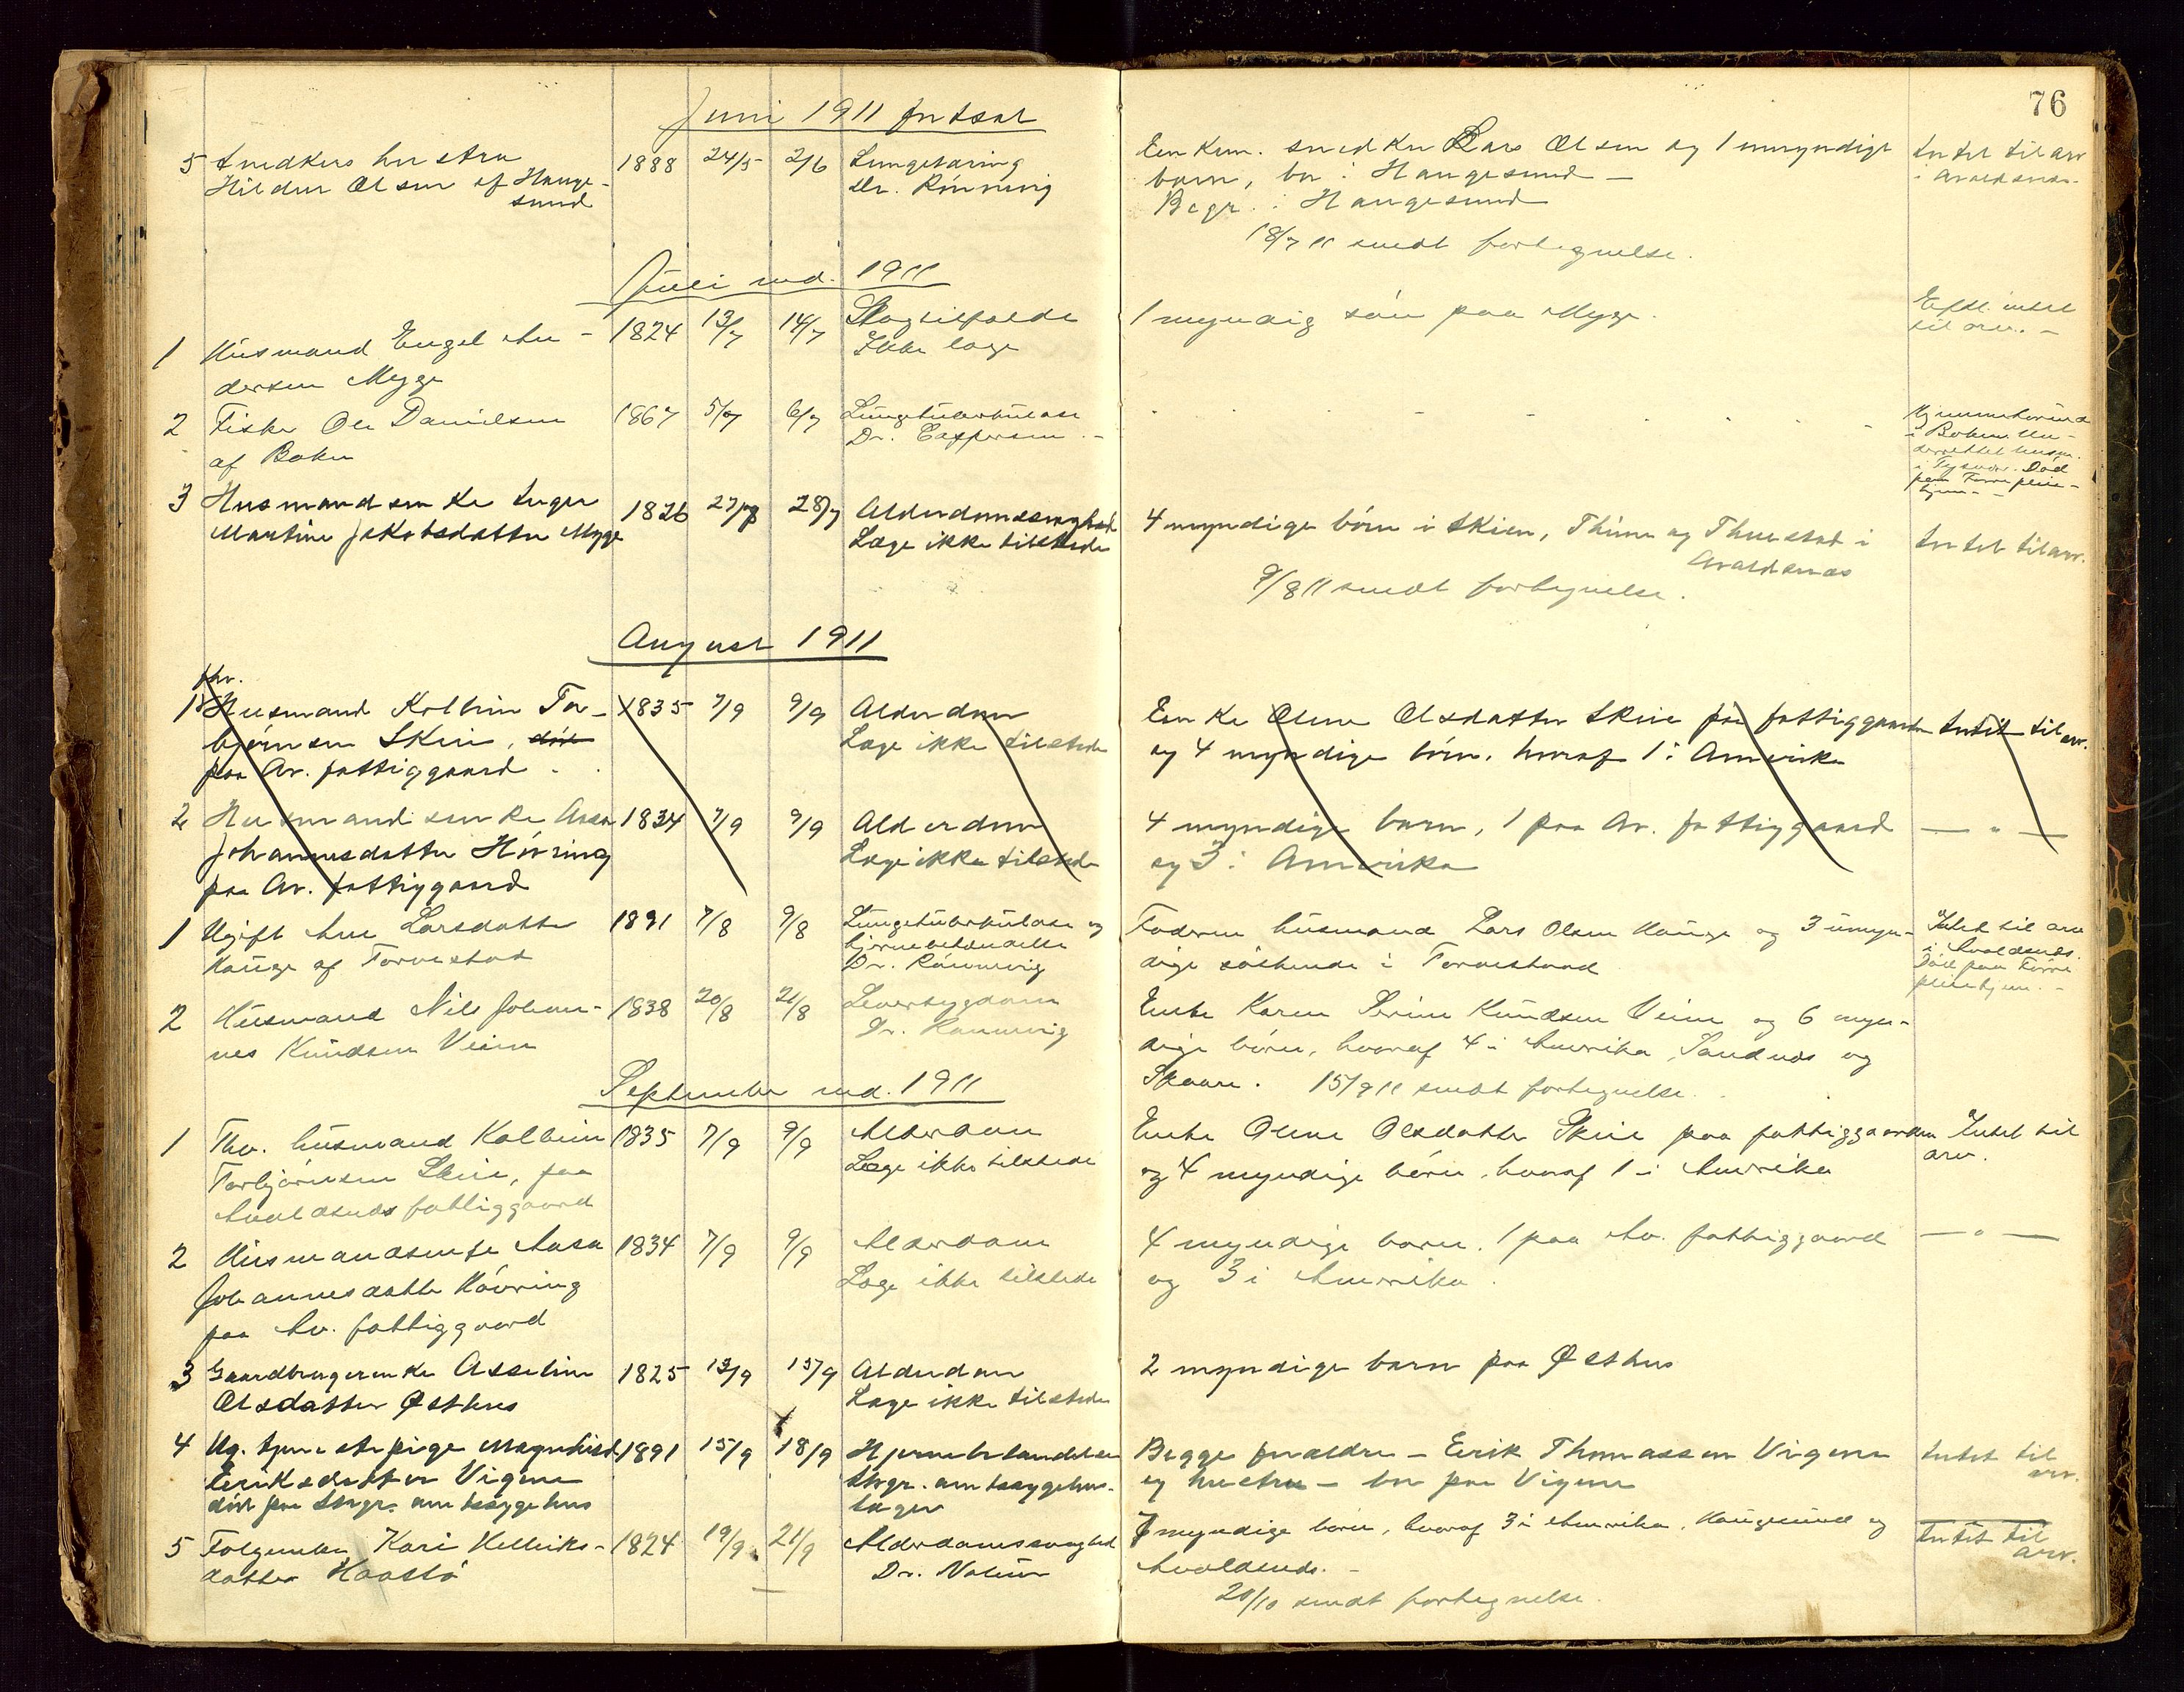 76
Juni 1911 fortsat
5 Snedkers hustru 1888 24/5 2/6 Lungetæring
Hildur Olsen af Hauge-
sund
Dr. Rönnevig
Enkem. snedker Lars Olsen og 1 umyndigt
barn, bor i Haugesund –
Begr. i Haugesund
18/7 11 sendt fortegnelse.
Intet til arv
i Avaldsnes.
Juli md. 1911
1 Husmand Engel An- 1824 13/7 14/7 Slagtilfælde
dersen Mygge
Ikke læge
1 myndig sön paa Mygge.
Efterl. intet
til arv. –
2 Fisker Ole Danielsen 1867 5/7 6/7 Lungetuberkulose
af Boken
Dr. Caspersen. –
Hjemmehörende
i Boken. Un-
i Tysvær. Död
paa Förre pleie-
hjem –
3 Husmandsenke Inger 1826 27/7 28/7 Alderdomssvaghed
Martine Jakobsdatter Mygge
Læge ikke tilstede
4 myndige börn i Skien, Thime og Thuestad i
Avaldsnes
9/8 11 sendt fortegnelse.
Intet til arv.
August 1911
fhv.
1 Husmand Kolbein Tor- 1835 7/9 9/9 Alderdom
björnsen Skeie, död
paa Av. fattiggaard
Læge ikke tilstede
Enke Olene Olsdatter Skeie paa fattiggaarden
og 4 myndige börn, hvoraf 1 i Amerika
Intet til arv.
2 Husmandsenke Aasa 1834 7/9 9/9 Alderdom
Johannesdatter Hövring
paa Av. fattiggaard
Læge ikke tilstede
4 myndige barn, 1 paa Av. fattiggaard
og 3 i Amerika
— " —
1 Ugift Ane Larsdatter 1891 7/8 9/8 Lungetuberkulose og
Hauge af Torvestad
hjernebetændelse
Dr. Rönnevig
Faderen husmand Lars Olsen Hauge og 3 umyn-
dige söskende i Torvestad
Intet til arv
i Avaldsnes.
Död paa Förre
pleiehjem. –
2 Husmand Nils Johan- 1838 20/8 21/8 Leversygdom
nes Knudsen Veim
Dr. Rønnevig
Enke Karen Serine Knudsen Veim og 6 myn-
dige börn, hvoraf 4 i Amerika, Sandnes og
Skaare. 15/9 11 sendt fortegnelse.
September md. 1911
1 Fhv. husmand Kolbein 1835 7/9 9/9 Alderdom
Torbjörnsen Skeie, paa
Avaldsnes fattiggaard
Læge ikke tilstede
Enke Olene Olsdatter Skeie paa fattiggaarden
og 4 myndige börn, hvoraf 1 i Amerika
Intet til
arv.
2 Husmandsenke Aasa 1834 7/9 9/9 Alderdom
Johannesdatter Hövring
paa Av. fattiggaard
Læge ikke tilstede
4 myndige barn, 1 paa Av. fattiggaard
og 3 i Amerika.
— " —
3 Gaardbrugerenke Asseline 1825 13/9 15/9 Alderdom
Olsdatter Østhus
Læge ikke tilstede
2 myndige barn paa Østhus
4 Ug. tjenestepige Magnhild 1891 15/9 18/9 Hjernebetændelse
Eriksdatter Vigene
död paa Stvgr. amtssygehus
Stvgr. amtssygehus-
læger
Begge forældre – Eerik Thomassen Vigene
og hustru – bor paa Vigene
Intet til
arv.
5 Folgeenke Kari Helliks- 1824 19/9 21/9 Alderdomssvaghed
datter Haastö
Dr. Natvig
7 myndige börn, hvoraf 3 i Amerika, Haugesund og
Avaldsnes. –
20/10 sendt fortegnelse.
Intet til
arv.